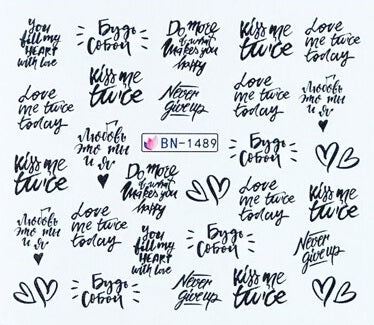 You
fill my
HEART
with love
Будь
Собой
Do more
of what
makes you
happy
Kiss me
twice
Love
me twice
today
Love
me twice
today
Kiss me
twice
Never
give up
Love
me twice
today
Любовь
это ты
и я
Любовь
это ты
и я
BN-1489
Будь
Собой
Kiss me
twice
Do more
of what
makes you
happy
Love
me twice
today
Kiss me
twice
Любовь
это ты
и я
Love
me twice
today
You
fill my
HEART
with love
Будь
Собой
Never
give up
Будь
Собой
Never
give up
Kiss me
twice